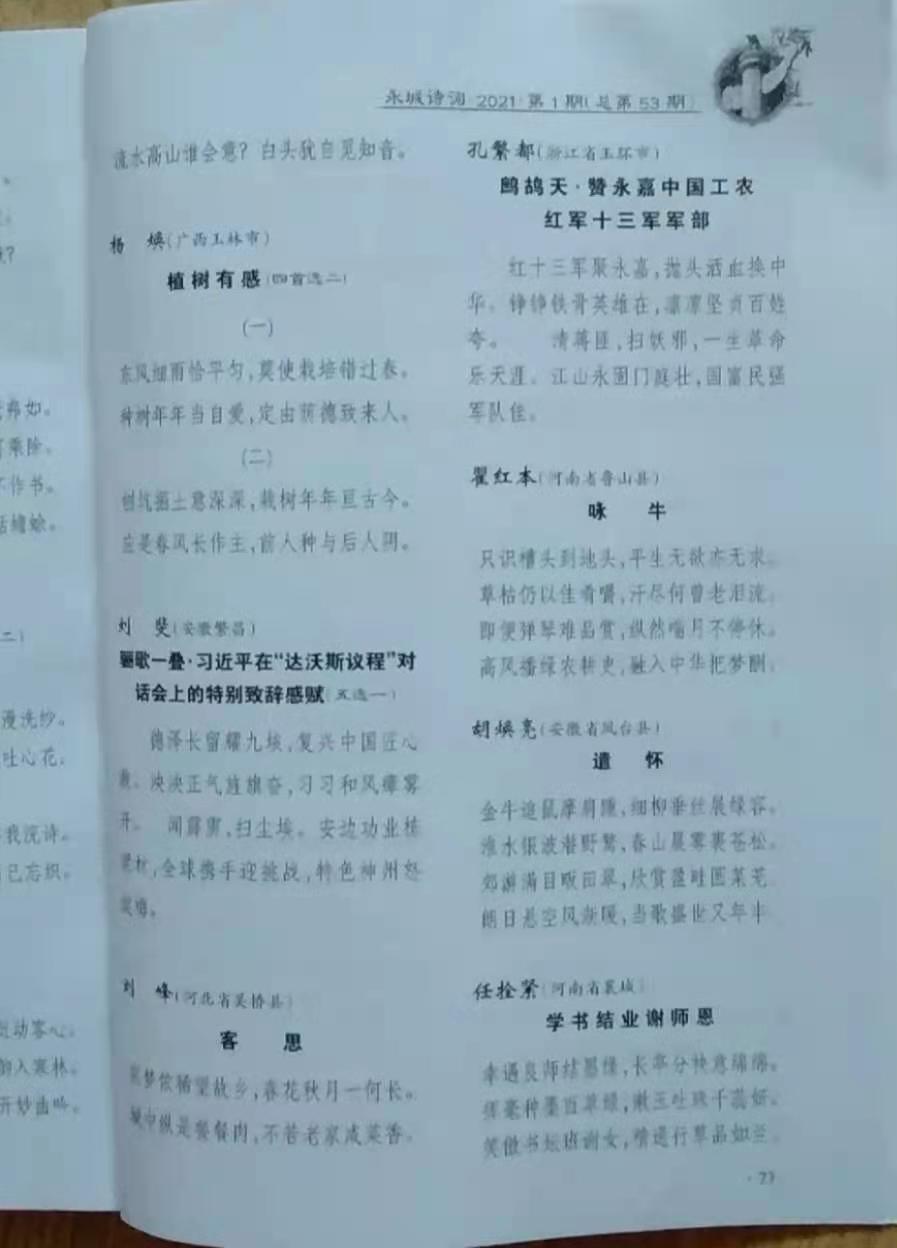 永城诗词·2021·第1期(总第53期)
流水高山谁会意？白头犹自见知音。
杨 焕(广西玉林市)
植树有感(四首选二)
(一)
东风细雨恰平匀,莫使栽培错过春。
种树年年当自爱,定由荫德致来人。
(二)
刨坑掘土意深深,栽树年年亘古今。
应是春风长作主,前人种与后人阴。
刘 斐(安徽繁昌)
骊歌一叠·习近平在“达沃斯议程”对
话会上的特别致辞感赋(五选一)
德泽长留耀九垓,复兴中国匠心
裁。泱泱正气旌旗奋,习习和风瘴雾
开。 闻霹雳,扫尘埃。安边功业栋
梁材,全球携手迎挑战,特色神州怒
刘 峰(河北省吴桥县)
客 思
梦依稀望故乡,春花秋月一何长。
城中纵是餐餐肉,不若老家咸菜香。
孔繁都(浙江省玉环市)
鹧鸪天·赞永嘉中国工农
红军十三军军部
红十三军聚永嘉,抛头洒血换中
华。铮铮铁骨英雄在,凛凛坚贞百姓
夸。 清蒋匪,扫妖邪,一生革命
乐天涯。江山永固门庭壮,国富民强
军队佳。
翟红本(河南省鲁山县)
咏 牛
只识槽头到地头,平生无欲亦无求。
草枯仍以佳肴嚼,汗尽何曾老泪流。
即便弹琴难品赏,纵然喘月不停休。
高风播绿农耕史,融入中华把梦酬。
胡焕亮(安徽省凤台县)
遣 怀
金牛追鼠摩肩随,细柳垂丝展绿容。
淮水银波潜野鹜,春山晨雾裹苍松。
郊游满目畈田翠,欣赏盈畦圃菜茏
朗日悬空风渐暖,当歌盛世又年丰
任拴紧(河南省襄城)
学书结业谢师恩
幸遇良师结墨缘,长亭分袂意绵绵。
挥毫种墨百草绿,漱玉吐珠千蕊妍。
笑傲书坛班谢女,情递行草品如兰。
·77
弗如。
乘除。
作书。
蟾蜍。
二)
漫浣纱。
吐心花。
我浣诗。
已忘织。
动客心。
入寒林。
开妙曲吟。